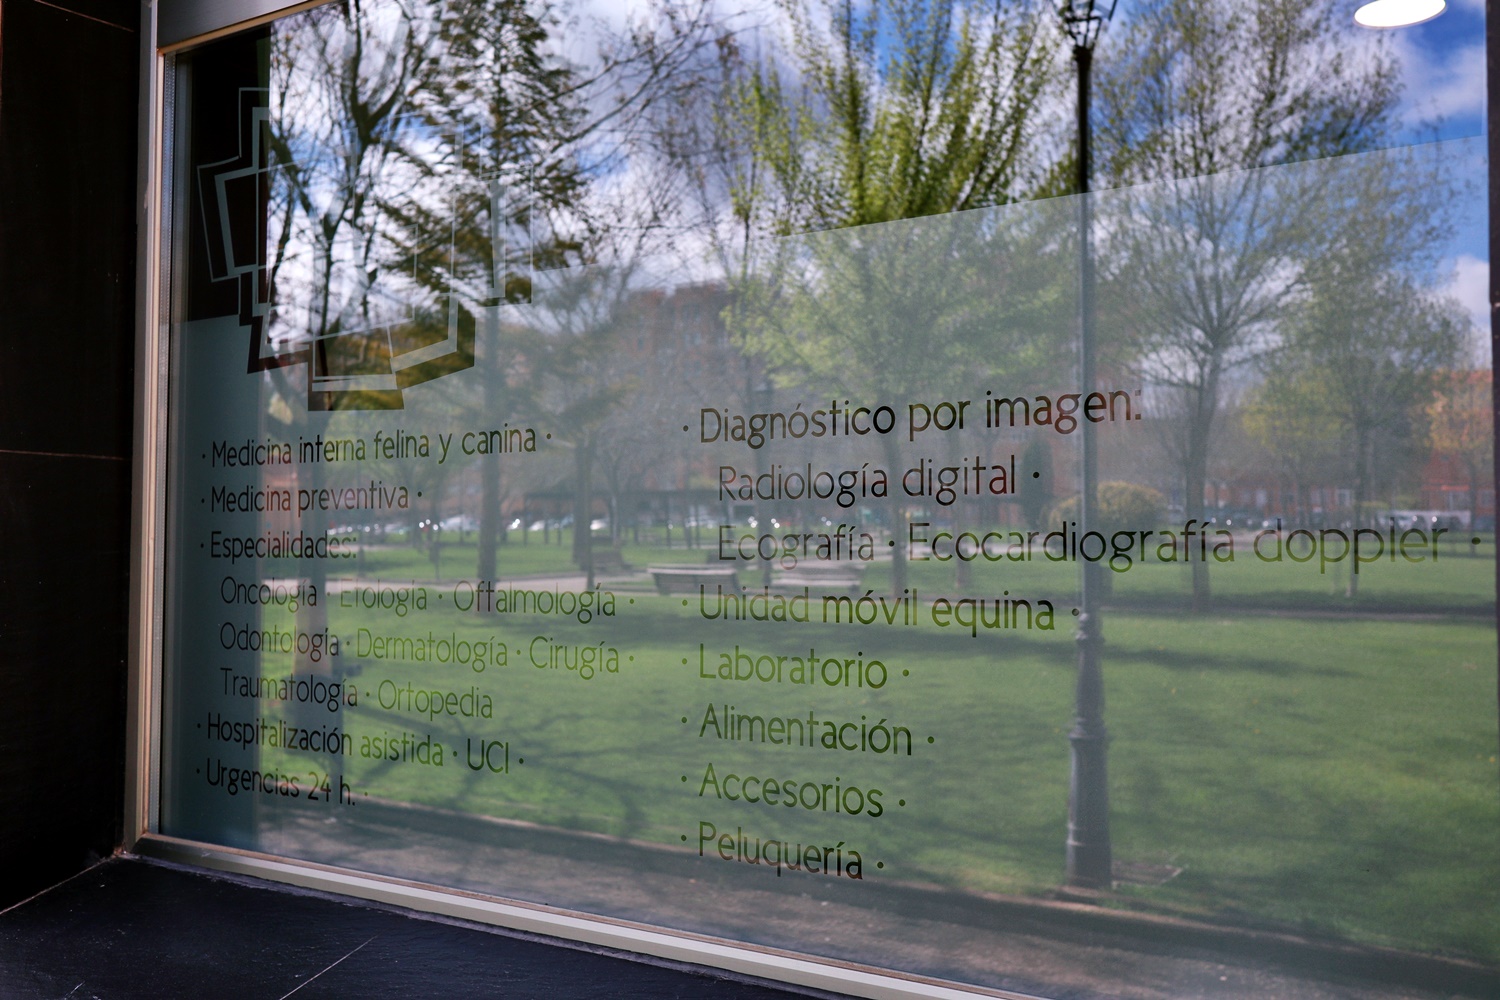 · Medicina interna felina y canina ·
· Medicina preventiva ·
· Especialidades:
Oncología · Etología · Oftalmología ·
Odontología · Dermatología · Cirugía ·
Traumatología · Ortopedia
· Hospitalización asistida · UCI ·
· Urgencias 24 h. ·
· Diagnóstico por imagen:
Radiología digital ·
Ecografía · Ecocardiografía doppler ·
· Unidad móvil equina ·
· Laboratorio ·
· Alimentación ·
· Accesorios ·
· Peluquería ·